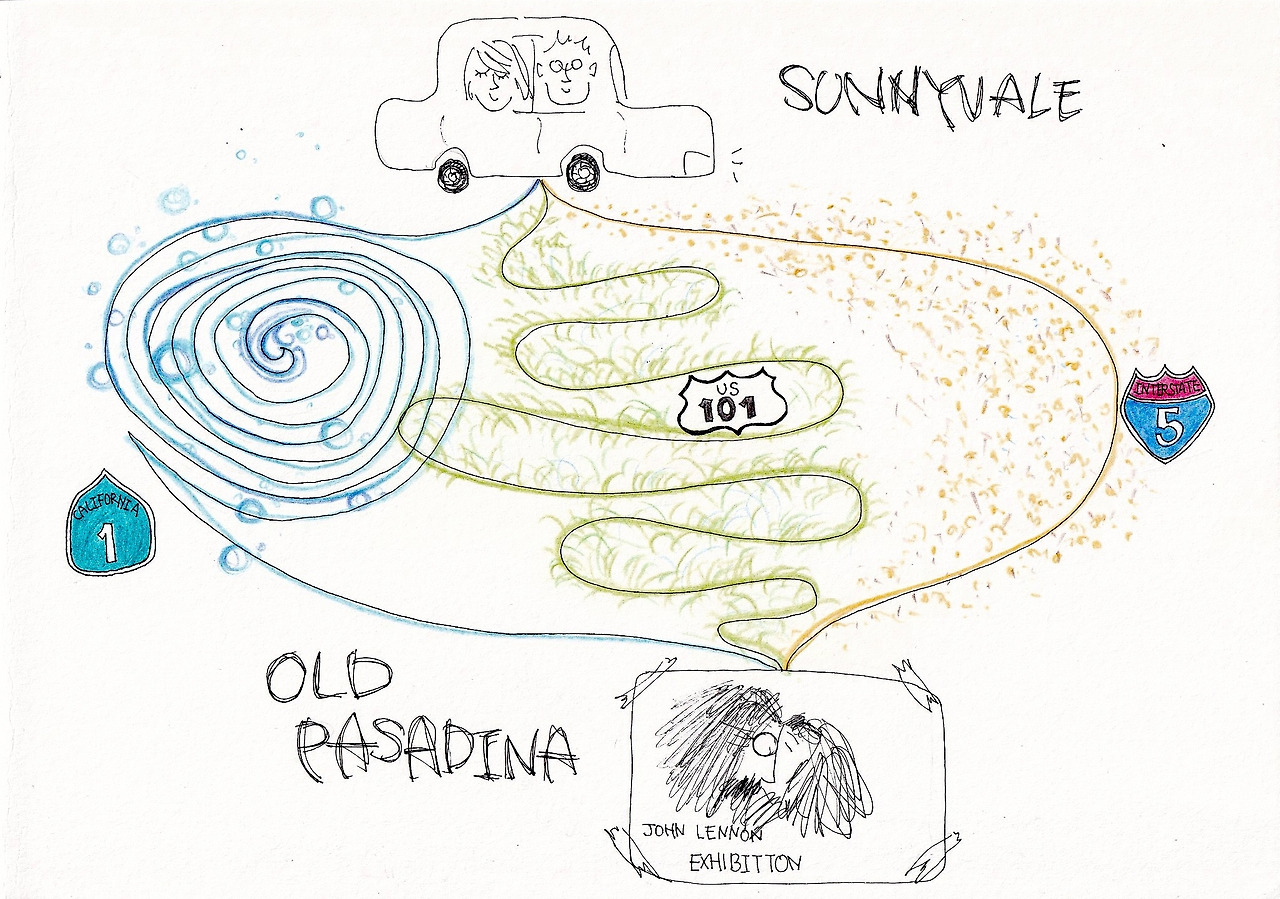 SUNNYVALE
US
101
INTERSTATE
5
CALIFORNIA
1
OLD
PASADINA
JOHN LENNON
EXHIBITTON